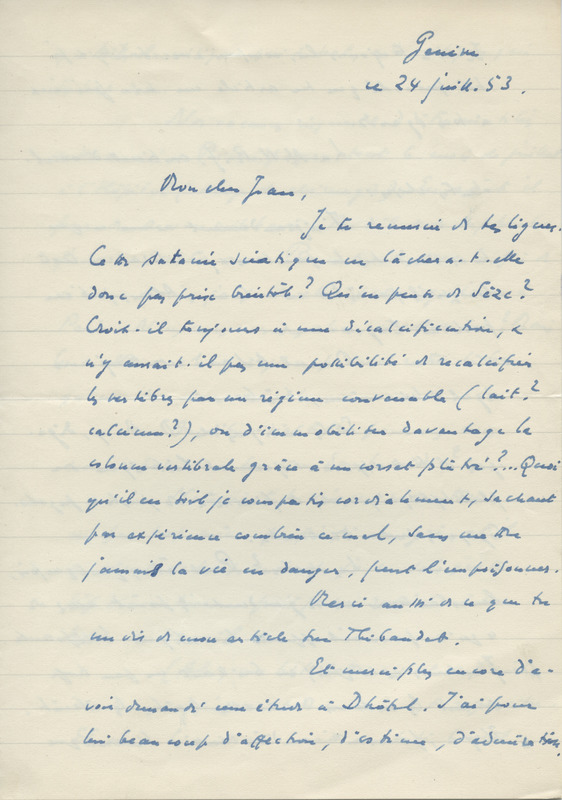 Genève
ce 24 juill. 53.
Mon cher Jean,
Je te remercie de tes lignes.
Cette satanée sciatique ne lâchera-t-elle
donc pas prise bientôt? Qu'en pense de Sèze?
Croit-il toujours à une décalcification,
n'y aurait-il pas une possibilité de recalcifier
les vertèbres par un régime convenable (lait?
calcium?), ou d'immobiliser davantage la
colonne vertébrale grâce à un corset plâtré?... Quoi
qu'il en soit je compatis cordialement, sachant
par expérience combien ce mal, sans mettre
jamais la vie en danger, peut l'empoisonner.
Merci aussi de ce que tu
me dis de mon article sur Thibaudet.
Et merci plus encore d'a-
voir demandé une étude à Dhôtel. J'ai pour
lui beaucoup d'affection, d'estime, d'admiration.